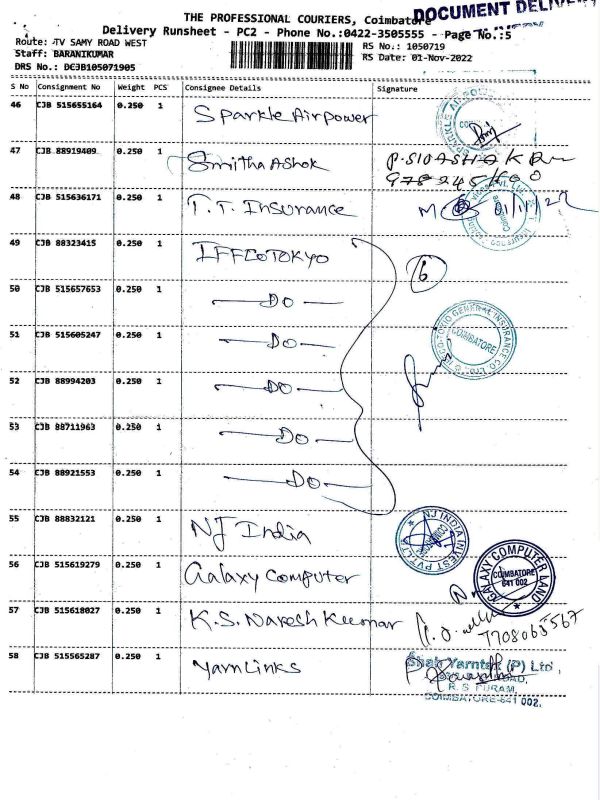 DOCUMENT DELIVERY
THE PROFESSIONAL COURIERS, Coimbatore
Delivery Runsheet - PC2 - Phone No.:0422-3505555 - Page No.:5
Route: TV SAMY ROAD WEST
RS No.: 1050719
Staff: BARANIKUMAR
RS Date: 01-Nov-2022
DRS No.: DCJB105071905
S No Consignment No Weight PCS Consignee Details Signature
46 CJB 515655164 0.250 1 Sparkle Airpower
47 CJB 88919409 0.250 1 Smitha Ashok
48 CJB 515636171 0.250 1 T.T. Insurance 01/11/22
49 CJB 88323415 0.250 1 IFFCO TOKYO 6
50 CJB 515657653 0.250 1 DO
51 CJB 515605247 0.250 1 DO
COIMBATORE
52 CJB 88994203 0.250 1 DO
53 CJB 88711963 0.250 1 DO
54 CJB 88921553 0.250 1 DO
55 CJB 88832121 0.250 1 NJ India
NJ INDIA INVEST PVT LTD
56 CJB 515619279 0.250 1 Galaxy Computer
GALAXY COMPUTER LAND
COIMBATORE
641 002
57 CJB 515618027 0.250 1 K.S. Naresh Kumar
7708065567
58 CJB 515565287 0.250 1 Yarn Links
Shah Yarntex (P) Ltd.,
R.S PURAM,
COIMBATORE-641 002.